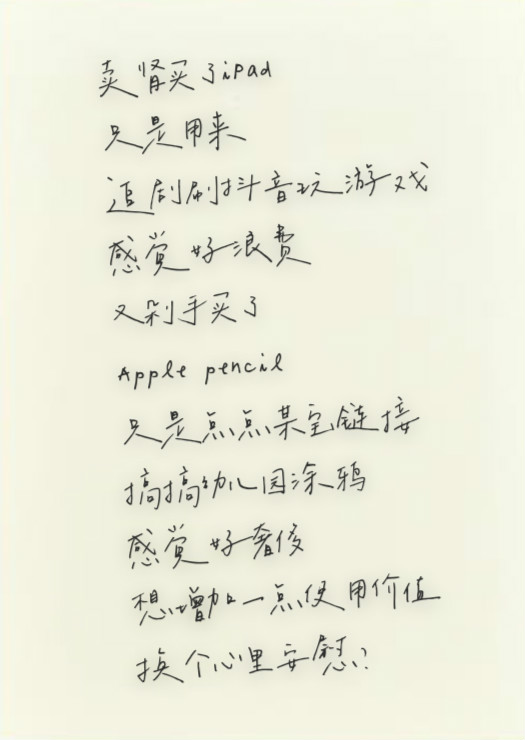 卖肾买了iPad
只是用来
追剧刷抖音玩游戏
感觉好浪费
又剁手买了
Apple pencil
只是点点某宝链接
搞搞幼儿园涂鸦
感觉好奢侈
想增加一点使用价值
换个心里安慰？